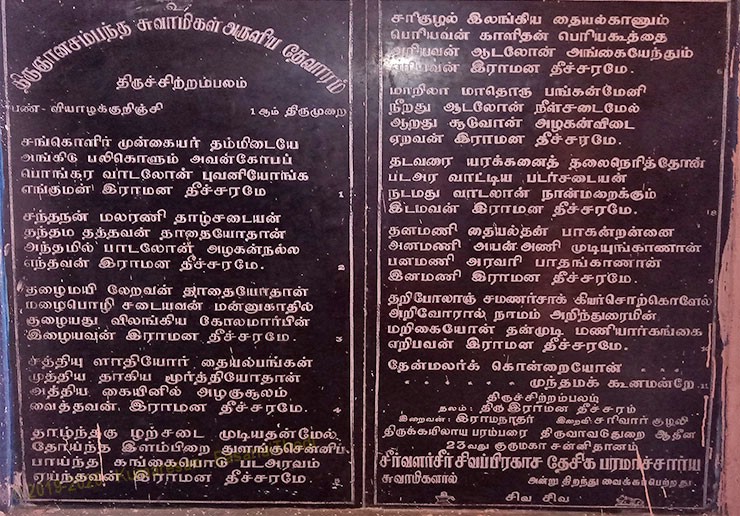 திருஞானசம்பந்த சுவாமிகள் அருளிய தேவாரம்
திருச்சிற்றம்பலம்
பண்-வியாழக்குறிஞ்சி 1ஆம் திருமுறை
சங்கொளிர் முன்கையர் தம்மிடையே
அங்கிடு பலிகொளும் அவன்கோபப்
பொங்கர வாடலோன் புவனியோங்க
எங்குமன் இராமன தீச்சரமே 1
சந்தநன் மலரணி தாழ்சடையன்
தந்தம தத்தவன் தாதையோதான்
அந்தமில் பாடலோன் அழகன்நல்ல
எந்தவன் இராமன தீச்சரமே. 2
தழைமயி லேறவன் தாதையோதான்
மழைபொழி சடையவன் மன்னுகாதில்
குழையது விலங்கிய கோலமார்பின்
இழையவன் இராமன தீச்சரமே. 3
சத்தியு ளாதியோர் தையல்பங்கன்
முத்திய தாகிய மூர்த்தியோதான்
அத்திய கையினில் அழகுசூலம்
வைத்தவன் இராமன தீச்சரமே. 4
தாழ்ந்தகு ழற்சடை முடியதன்மேல்
தோய்ந்த இளம்பிறை துளங்குசென்னிப்
பாய்ந்த கங்கையொடு படஅரவம்
ஏய்ந்தவன் இராமன தீச்சரமே.
சரிகுழல் இலங்கிய தையல்காணும்
பெரியவன் காளிதன் பெரியகூத்தை
அரியவன் ஆடலோன் அங்கையேந்தும்
எரியவன் இராமன தீச்சரமே.
மாறிலா மாதொரு பங்கன்மேனி
நீறது ஆடலோன் நீள்சடைமேல்
ஆறது சூடுவான் அழகன்விடை
ஏறவன் இராமன தீச்சரமே.
தடவரை யரக்கனைத் தலைநெரித்தோன்
படஅர வாட்டிய படர்சடையன்
நடமது வாடலான் நான்மறைக்கும்
இடமவன் இராமன தீச்சரமே.
தனமணி தையல்தன் பாகன்றன்னை
அனமணி அயன்அணி முடியுங்காணான்
பனமணி அரவரி பாதங்காணான்
இனமணி இராமன தீச்சரமே.
தறிபோலாஞ் சமணர்சாக் கியர்சொற்கொளேல்
அறிவோரால் நாமம் அறிந்துரைமின்
மறிகையோன் தன்முடி மணியார்கங்கை
எறிபவன் இராமன தீச்சரமே.
தேன்மலர்க் கொன்றையோன் . . . . . .
முந்தமக் கூனமன்றே 11
திருச்சிற்றம்பலம்
தலம்: திரு இராமன தீச்சரம்
இறைவன்: இராமநாதர் இறைவி சரிவார் குழலி
திருக்கயிலாய பரம்பரை திருவாவடுதுறை ஆதீன
23வது குருமகா சன்னிதானம்
சீர்வளர்சீர் சிவப்பிரகாச தேசிக பரமாச்சார்ய
சுவாமிகளால் அன்று திறந்து வைக்கப்பெற்றது
சிவ சிவ